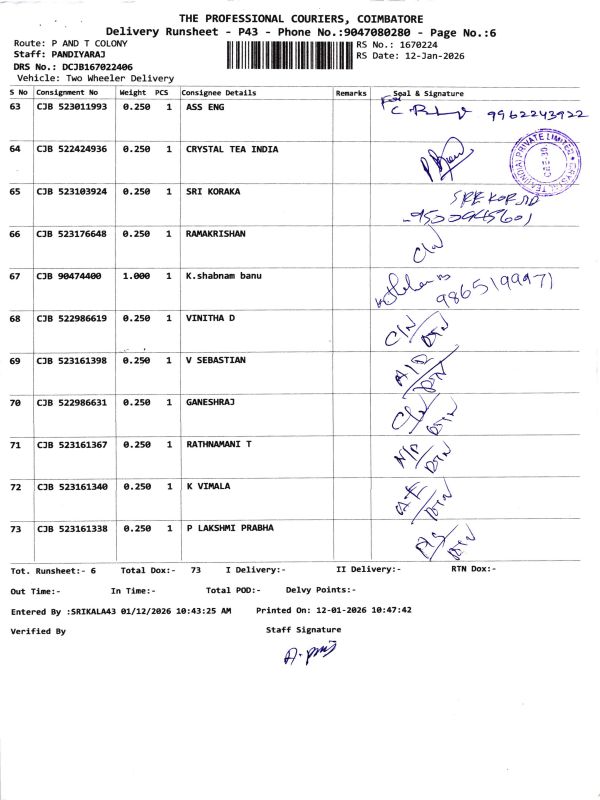 THE PROFESSIONAL COURIERS, COIMBATORE
Delivery Runsheet - P43 - Phone No.:9047080280 - Page No.:6
Route: P AND T COLONY
Staff: PANDIYARAJ
DRS No.: DCJB167022406
Vehicle: Two Wheeler Delivery
RS No.: 1670224
RS Date: 12-Jan-2026
S No Consignment No Weight PCS Consignee Details Remarks Seal & Signature
63 CJB 523011993 0.250 1 ASS ENG 9962243922
64 CJB 522424936 0.250 1 CRYSTAL TEA INDIA
CRYSTAL TEA (INDIA) PRIVATE LIMITED
65 CJB 523103924 0.250 1 SRI KORAKA
66 CJB 523176648 0.250 1 RAMAKRISHAN C/N
67 CJB 90474400 1.000 1 K.shabnam banu 9865199971
68 CJB 522986619 0.250 1 VINITHA D C/N DTN
69 CJB 523161398 0.250 1 V SEBASTIAN DTN
70 CJB 522986631 0.250 1 GANESHRAJ C/N DTN
71 CJB 523161367 0.250 1 RATHNAMANI T N/P DTN
72 CJB 523161340 0.250 1 K VIMALA DTN
73 CJB 523161338 0.250 1 P LAKSHMI PRABHA DTN
Tot. Runsheet:- 6 Total Dox:- 73 I Delivery:- II Delivery:- RTN Dox:-
Out Time:- In Time:- Total POD:- Delvy Points:-
Entered By :SRIKALA43 01/12/2026 10:43:25 AM Printed On: 12-01-2026 10:47:42
Verified By Staff Signature